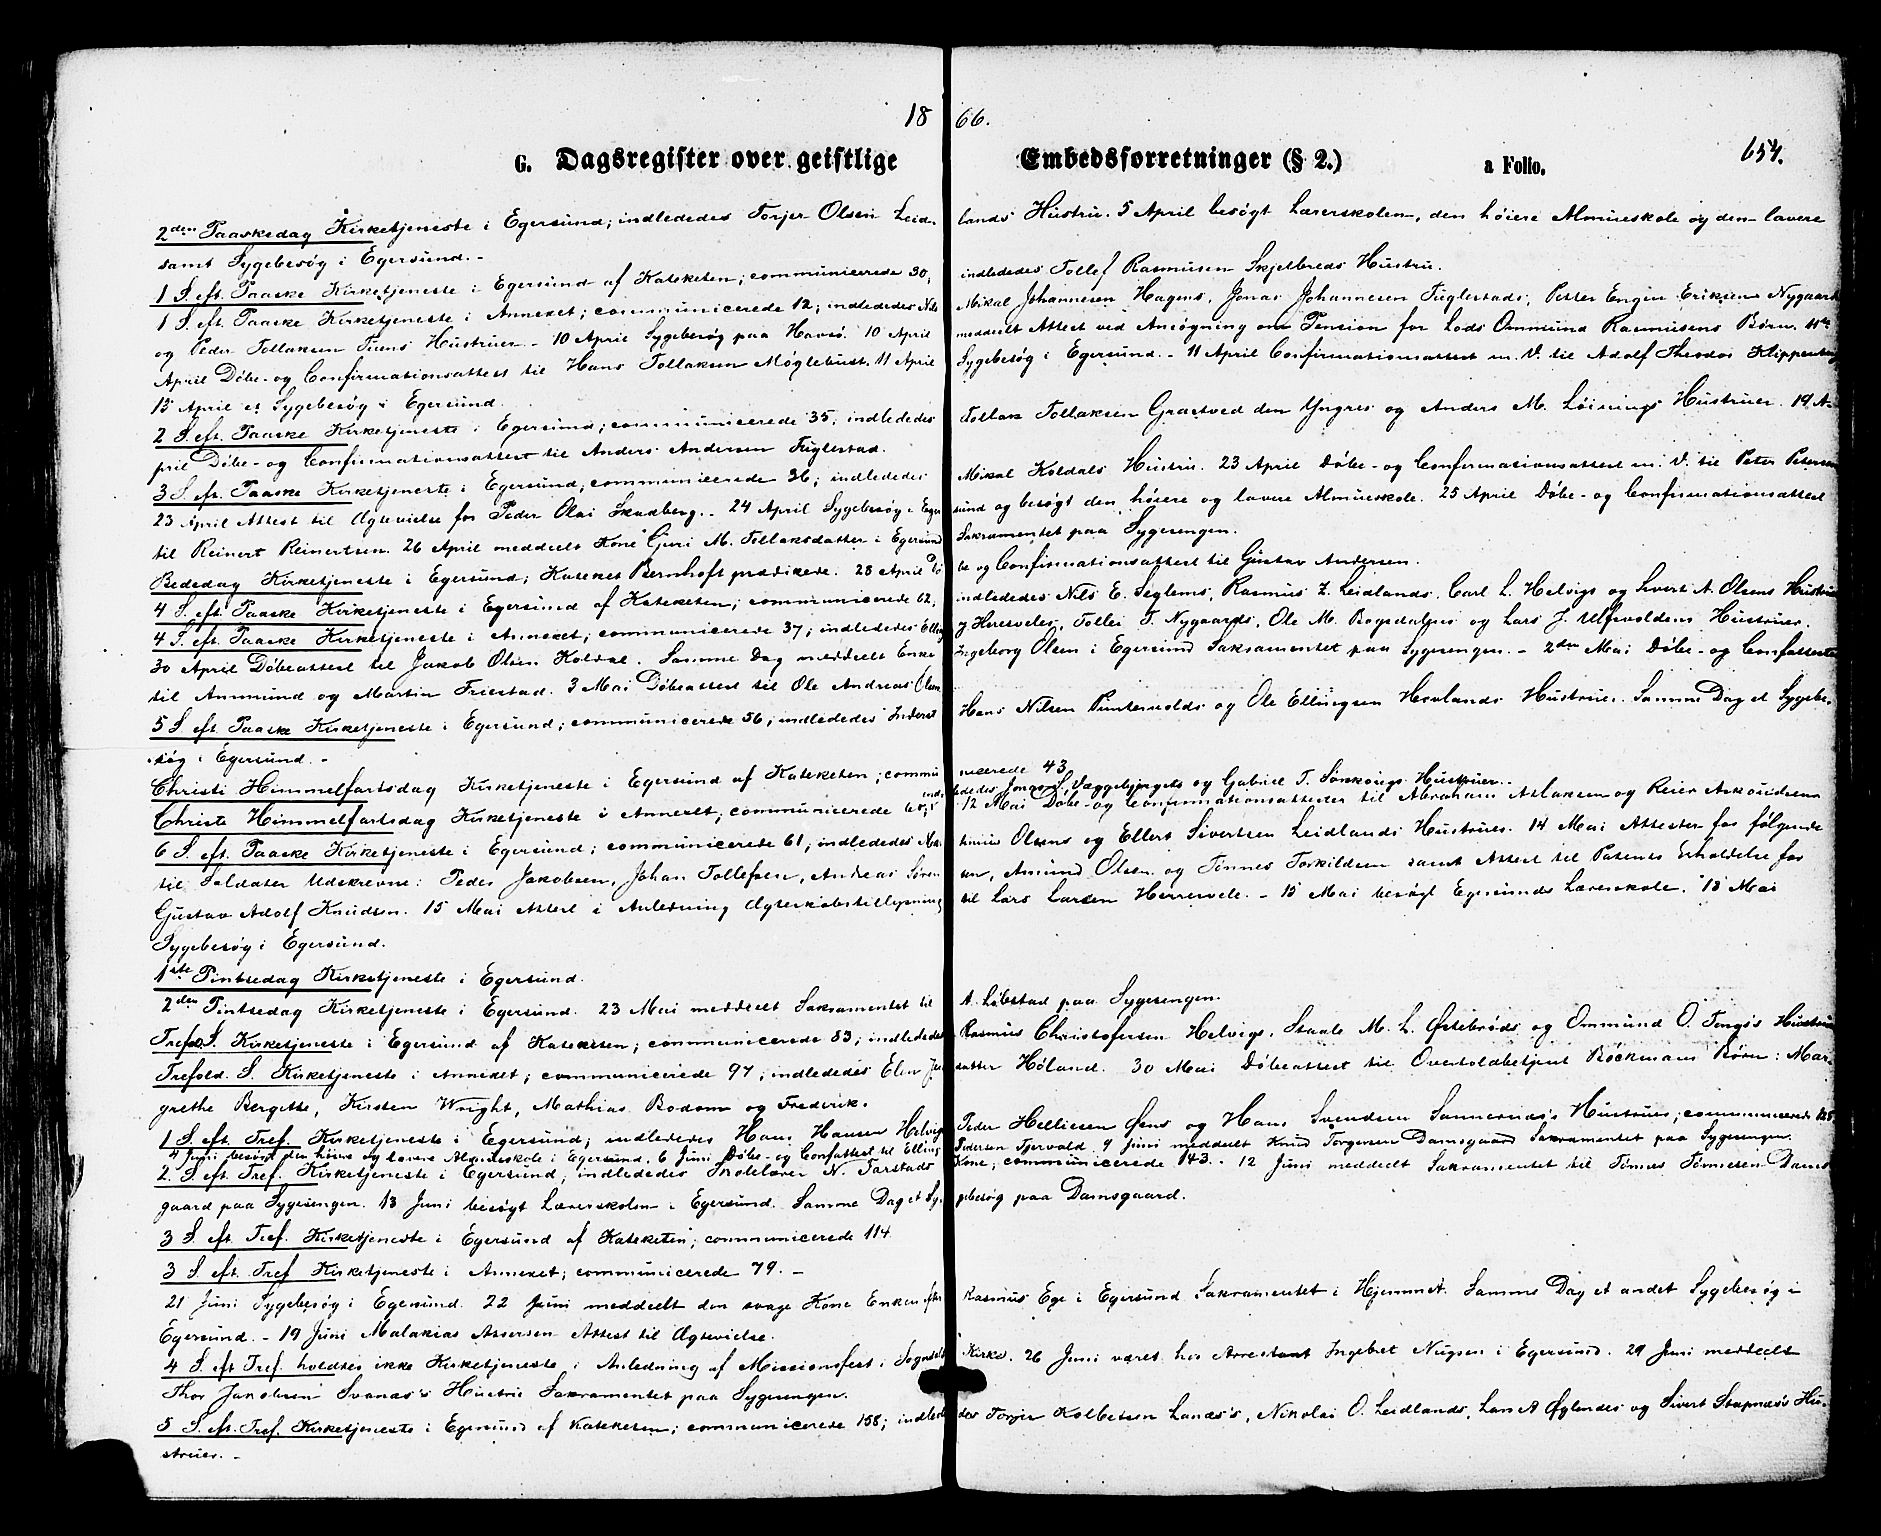 1866.
G. Dagsregister over geistlige Embedsforretninger (§ 2.) a Folio. 654.
2den Paaskedag Kirketjeneste i Egersund; indlededes Torjer Olsen Leid- lands Hustru. 5 April besøgt Lærerskolen, den høiere Almueskole og den lavere
samt Sygebesøg i Egersund. -
1 S. eft. Paaske Kirketjeneste i Egersund af Kateketen; communicerede 30; indlededes Tollef Rasmusen Skjelbreds Hustru.
1 S. eft. Paaske Kirketjeneste i Annexet; communicerede 12; indlededes Nils Mikal Johannesen Hagens, Jonas Johannesen Fuglestads, Petter Engin Eriksen Nygaards
og Peder Tollaksen Tuens Hustruer - 10 April Sygebesøg paa Havsø. 10 April meddeelt Attest ved Ansøgning om Pension for Lods Ommund Rasmusens Børn. 11te
April Døbe- og Confirmationsattest til Hans Tollaksen Møglebust. 11 April Sygebesøg i Egersund. - 11 April Confirmationsattest m. V. til Adolf Theodor
13 April et Sygebesøg i Egersund.
2 S. eft. Paaske Kirketjeneste i Egersund; communicerede 35; indlededes Tollak Tollaksen Gractved den Yngres og Anders M. Løinings Hustruer. 19 A-
pril Døbe- og Confirmationsattest til Anders Andersen Fuglestad.
3 S. eft. Paaske Kirketjeneste i Egersund; communicerede 36; indlededes Mikal Koldals Hustru. 23 April Døbe- og Confirmationsattest m. V. til Peter Petersen
23 April Attest til Ægtevielse for Peder Olai Skadberg. - 24 April Sygebesøg i Eger- sund og besøgt den høiere og lavere Almueskole. 25 April Døbe- og Confirmationsattest
til Reinert Reinertsen. 26 April meddeelt Kone Guri M. Tollaksdatter i Egersund Sakramentet paa Sygesengen.
Bededag Kirketjeneste i Egersund; Kateket Bernhoft prædikede. 28 April Dø- be og Confirmationsattest til Gustav Andersen.
4 S. eft. Paaske Kirketjeneste i Egersund af Kateketen; communicerede 62; indlededes Nils E. Seglems, Rasmus Z. Leidlands, Carl L. Helvigs og Sivert A. Olsens Hustruer
4 S. eft. Paaske Kirketjeneste i Annexet; communicerede 37; indlededes Elling Herrsveles, Tollei T. Nygaards, Ole M. Bogsdalens og Lars J. Ulfsvoldens Hustruer.
30 April Døbeattest til Jakob Olsen Koldal. Samme Dag meddeelt Enke Ingeborg Olsen i Egersund Sakramentet paa Sygesengen. - 2den Mai Døbe- og Confattester
til Ammund og Martin Friestad. 3 Mai Døbeattest til Ole Andreas Olsen
5 S. eft. Paaske Kirketjeneste i Egersund; communicerede 56; indlededes Hans Nilsen Puntervolds og Ole Ellingsen Hovlands Hustruer. Samme Dag et Sygebe-
søg i Egersund. -
Christi Himmelfartsdag Kirketjeneste i Egersund af Kateketen; commu- nicerede 43
Christi Himmelfartsdag Kirketjeneste i Annexet; communicerede 68; ind- lededes Jonas S. Væggebjergets og Gabriel T. Hustruer.
12 Mai Døbe- og Confirmationsattester til Abraham Aslaksen og Reier Askouldsen
6 S. eft. Paaske Kirketjeneste i Egersund; communicerede 61; indlededes Olsens og Ellert Sivertsen Leidlands Hustruer. 14 Mai Attester for følgende
til Soldater Udskrevne: Peder Jakobsen, Johan Tollefsen, Andreas Søren- sen, Amund Olsen og Tønnes Torkildsen samt Attest til Patents Erholdelse for
Gustav Adolf Knudsen. 15 Mai Attest i Anledning Ægteskabstillysning til Lars Larsen Herrevele. - 18 Mai besøgt Egersunds Lærerskole. 18 Mai
Sygebesøg i Egersund.
1ste Pintsedag Kirketjeneste i Egersund.
2den Pintsedag Kirketjeneste i Egersund. 23 Mai meddeelt Sakramentet til A. Løbstad paa Sygesengen.
Trefold. S. Kirketjeneste i Egersund af Kateketen; communicerede 83; indlededes Rasmus Christofersen Helvigs, Staale M. L. Østebrøds og Ommund O. Tengs's Hustruer
Trefold. S. Kirketjeneste i Annexet; communicerede 97; indlededes Høland. 30 Mai Døbeattest til Overtoldbetjent Böckmans Børn: Mar-
grethe Bergitte, Kirsten Wright, Mathias Bodom og Frederik.
1 S. eft. Tref. Kirketjeneste i Egersund; indlededes Hans Hansen Helvig Peder Helliesen Øens og Hans Svendsen Sannernes's Hustruer; communicerede 128
4 Juni besøgt den høiere og lavere Almueskole i Egersund. 6 Juni Døbe- og Confattest til Elling Pedersen Tjervold. 9 Juni meddeelt Knud Torgersen Damsgaard Sakramentet paa Sygesengen.
2 S. eft. Tref. Kirketjeneste i Egersund; indlededes Skolelærer N. Tarstads Kone; communicerede 143. - 12 Juni meddeelt Sakramentet til Tønnes Tønnesen Dams-
gaard paa Sygesengen. 13 Juni besøgt Lærerskolen i Egersund. Samme Dag et Sy- gebesøg paa Damsgaard.
3 S. eft. Tref. Kirketjeneste i Egersund af Kateketen; communicerede 114
3 S. eft. Tref Kirketjeneste i Annexet; communicerede 79. -
21 Juni Sygebesøg i Egersund. 22 Juni meddeelt den svage Kone Enken efter Rasmus Ege i Egersund Sakramentet i Hjemmet. Samme Dag et andet Sygebesøg i
Egersund. - 19 Juni Malakias Assersen Attest til Ægtevielse.
4 S. eft Tref. holdtes ikke Kirketjeneste i Anledning af Missionsfest i Sogndals Kirke. 26 Juni været hos Arrestant Ingebret Nugsen i Egersund. 29 Juni meddeelt
Thor Jakobsen Svanæs's Hustru Sakramentet paa Sygesengen.
5 S. eft. Tref. Kirketjeneste i Egersund af Kateketen; communicerede 158; indlede- des Torjer Kolbetsen Lanæs's, Nikolai O. Leidlands, Lars A Øglendes og Sivert Stapnæs's Hu-
struer. -